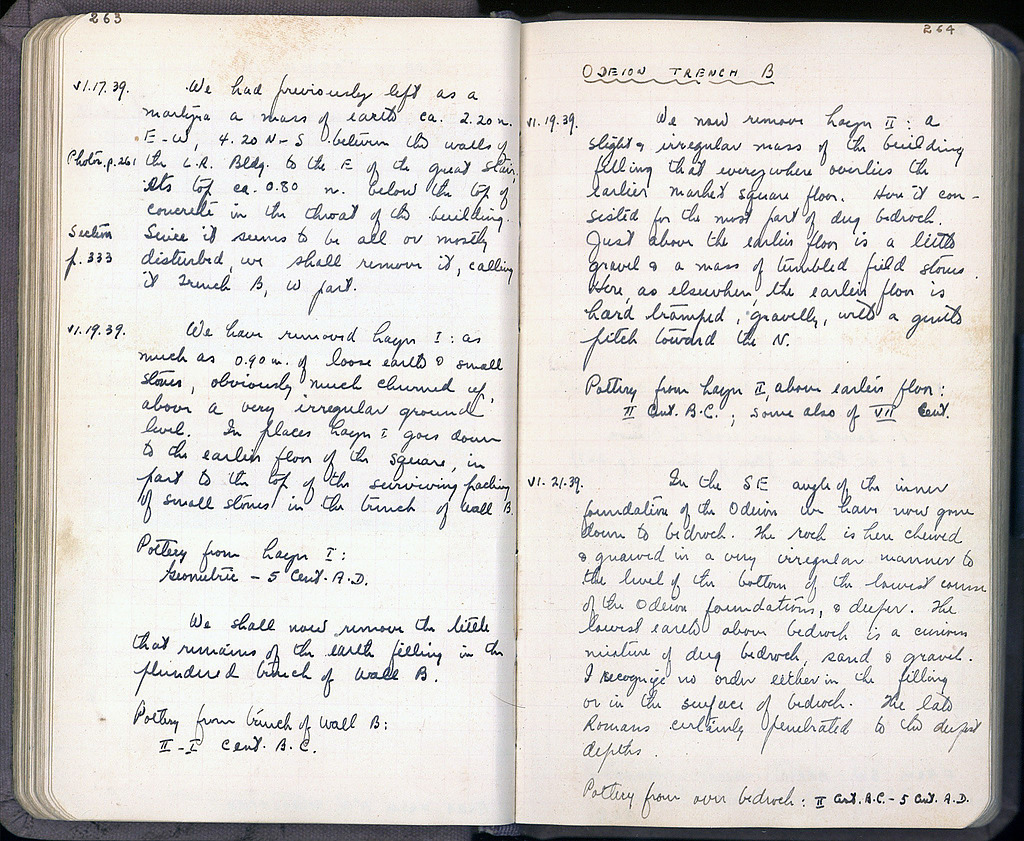 263
VI.17.39. We had previously left as a
martyra a mass of earth ca. 2.20 m.
E-W, 4.20 N-S between the walls of
Photo. p. 261 the L.R. Bldg. to the E of the great stair,
its top ca. 0.80 m. below the top of
concrete in the throat of the building.
Section Since it seems to be all or mostly
p. 333 disturbed, we shall remove it, calling
it Trench B, W part.
VI.19.39. We have removed Layer I: as
much as 0.90 m. of loose earth & small
stones, obviously much churned up,
above a very irregular ground
level. In places Layer I goes down
to the earlier floor of the square, in
part to the top of the surviving packing
of small stones in the trench of wall B.
Pottery from Layer I:
Geometric - 5 Cent. A.D.
We shall now remove the little
that remains of the earth filling in the
plundered trench of wall B.
Pottery from trench of wall B:
II-I Cent. B.C.
264
ODEION TRENCH B
VI.19.39. We now remove Layer II: a
slight & irregular mass of the building
filling that everywhere overlies the
earlier market square floor. Here it con-
sisted for the most part of dug bedrock.
Just above the earlier floor is a little
gravel & a mass of tumbled field stones.
Here, as elsewhere, the earlier floor is
hard tramped, gravelly, with a gentle
pitch toward the N.
Pottery from Layer II, above earlier floor:
II Cent. B.C.; some also of VII Cent.
VI.21.39. In the SE angle of the inner
foundation of the Odeion we have now gone
down to bedrock. The rock is here chewed
& gnawed in a very irregular manner to
the level of the bottom of the lowest course
of the Odeion foundations, & deeper. The
lowest earth above bedrock is a curious
mixture of dug bedrock, sand & gravel.
I recognize no order either in the filling
or in the surface of bedrock. The late
Romans certainly penetrated to the deepest
depths.
Pottery from over bedrock: II Cent. B.C. - 5 Cent. A.D.